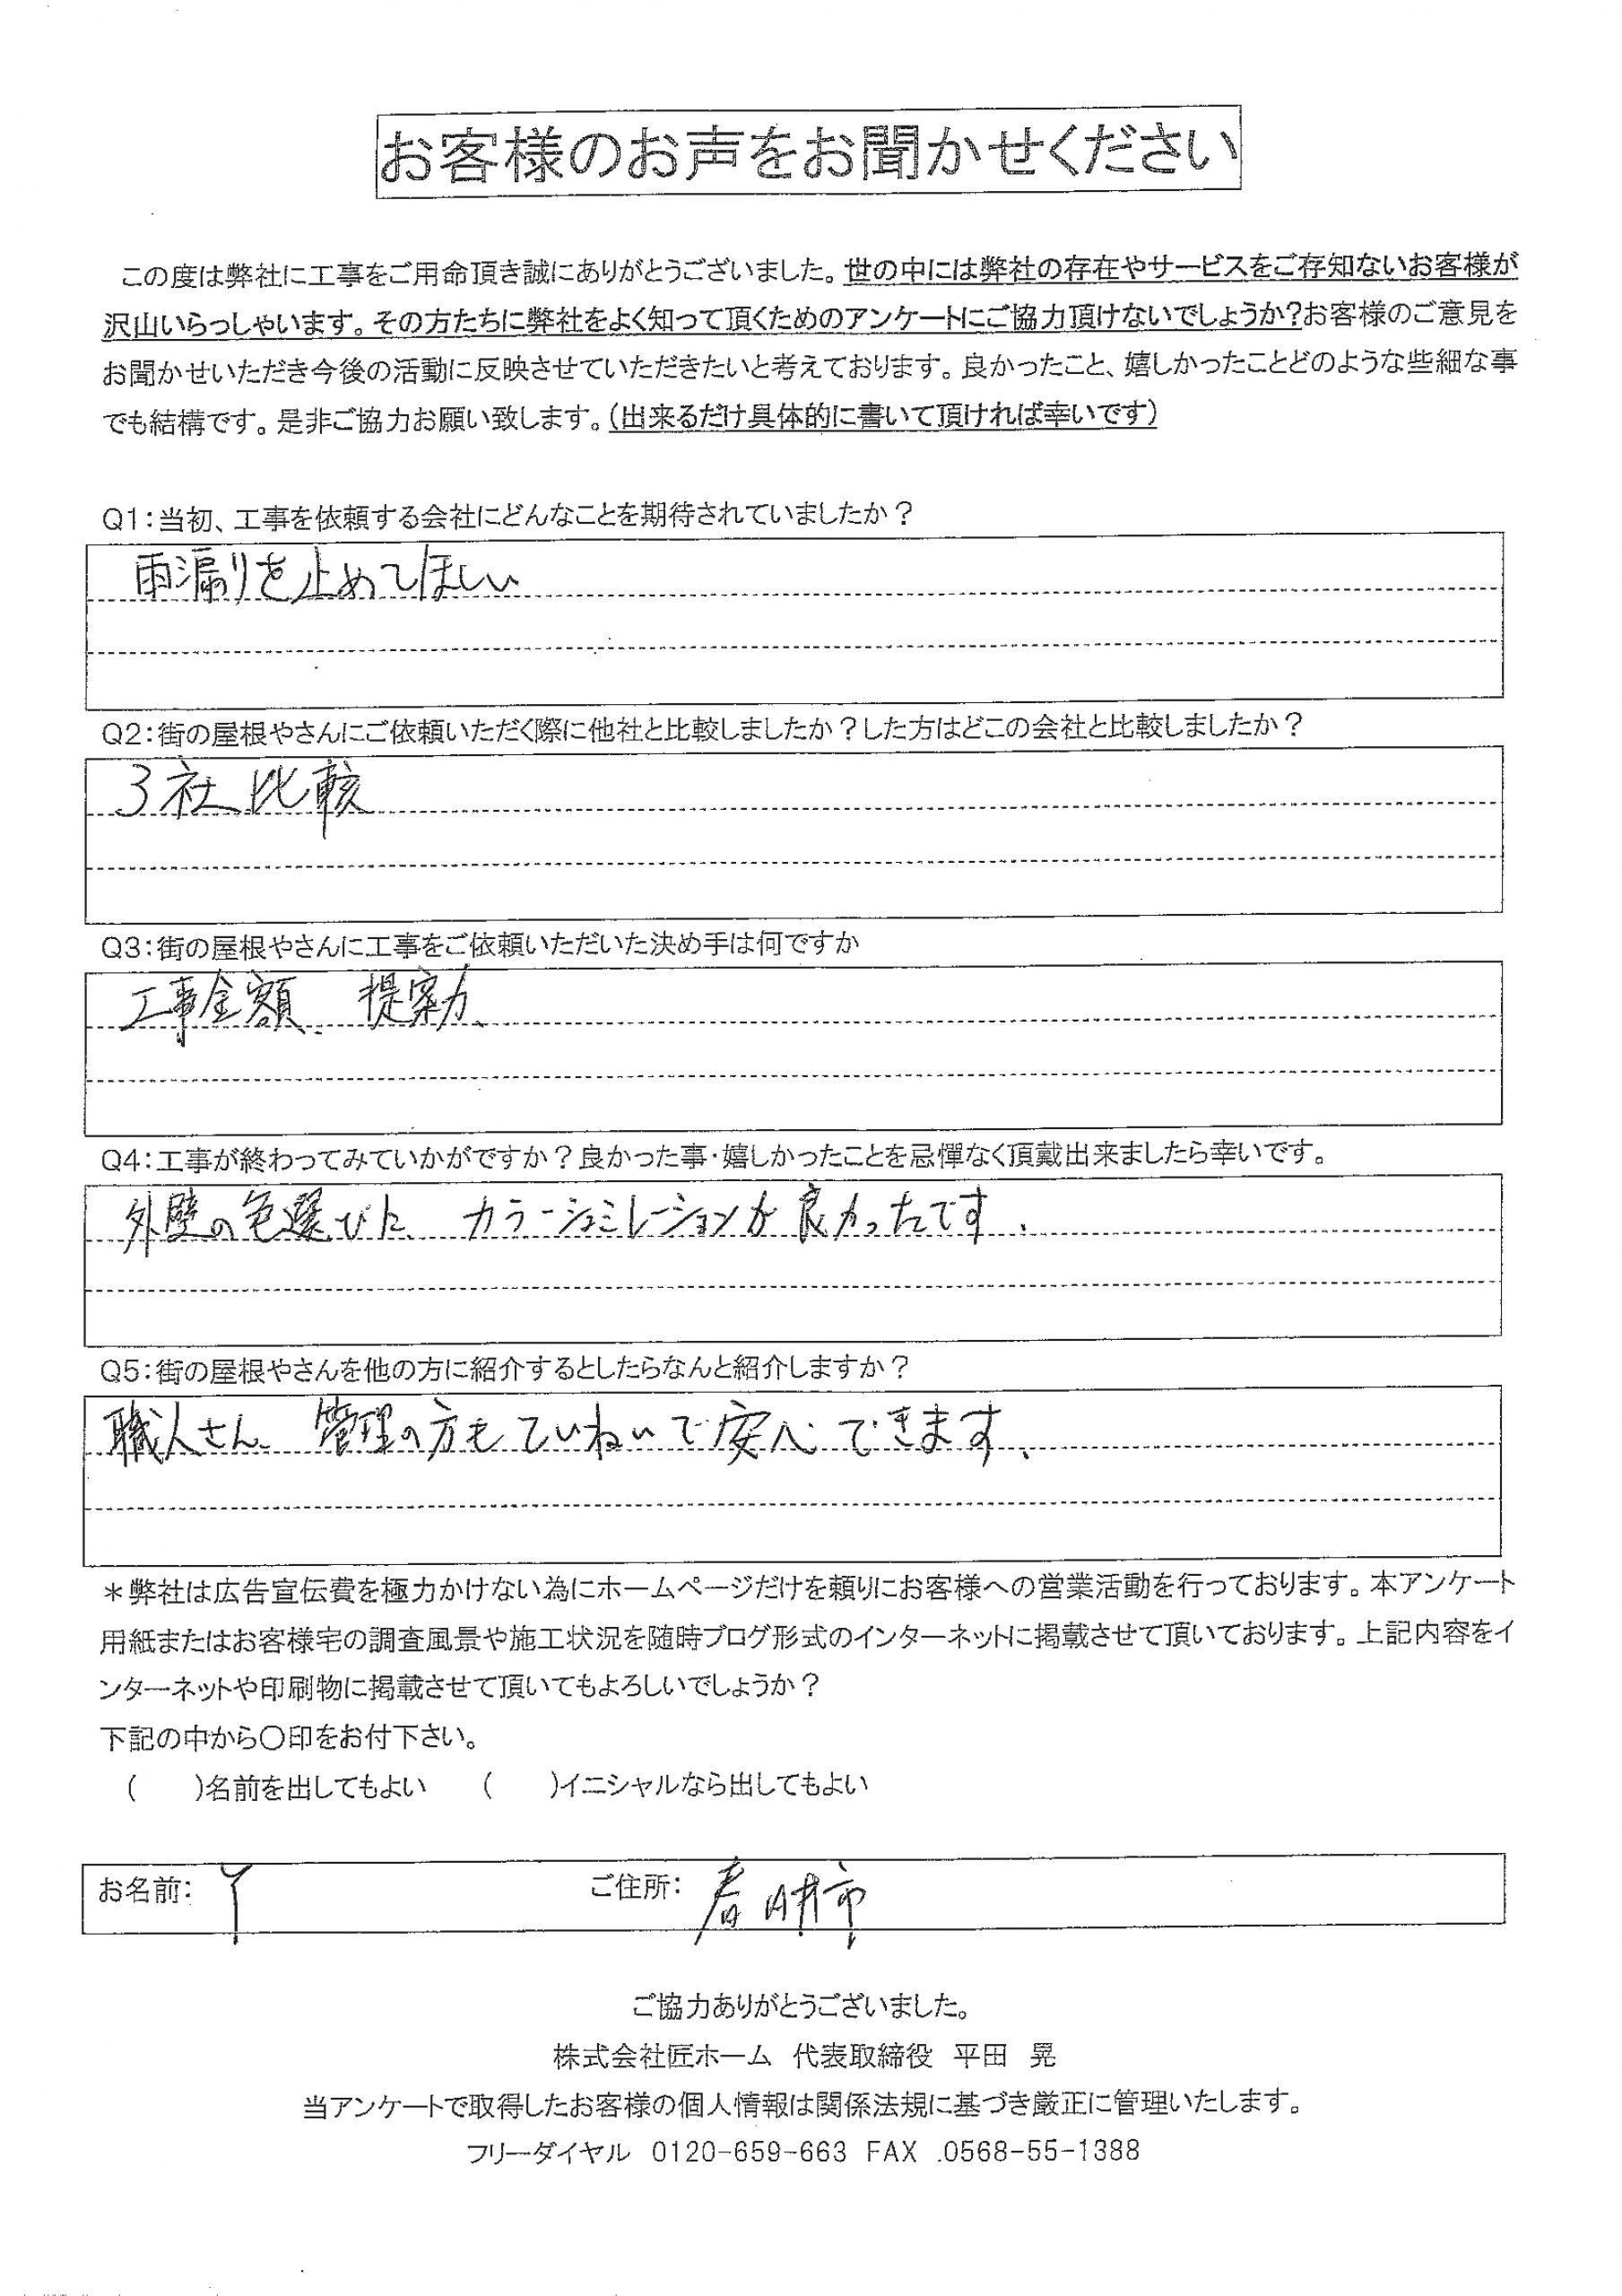 お客様のお声をお聞かせください
この度は弊社に工事をご用命頂き誠にありがとうございました。世の中には弊社の存在やサービスをご存知ないお客様が
沢山いらっしゃいます。その方たちに弊社をよく知って頂くためのアンケートにご協力頂けないでしょうか?お客様のご意見を
お聞かせいただき今後の活動に反映させていただきたいと考えております。良かったこと、嬉しかったことどのような些細な事
でも結構です。是非ご協力お願い致します。(出来るだけ具体的に書いて頂ければ幸いです)
Q1:当初、工事を依頼する会社にどんなことを期待されていましたか?
雨漏りを止めてほしい
Q2:街の屋根やさんにご依頼いただく際に他社と比較しましたか?した方はどこの会社と比較しましたか?
3社比較
Q3:街の屋根やさんに工事をご依頼いただいた決め手は何ですか
工事金額、提案力、
Q4:工事が終わってみていかがですか?良かった事・嬉しかったことを忌憚なく頂戴出来ましたら幸いです。
外壁の色選びに、カラーシュミレーションが良かったです、
Q5:街の屋根やさんを他の方に紹介するとしたらなんと紹介しますか?
職人さん、管理の方もていねいで安心できます、
*弊社は広告宣伝費を極力かけない為にホームページだけを頼りにお客様への営業活動を行っております。本アンケート
用紙またはお客様宅の調査風景や施工状況を随時ブログ形式のインターネットに掲載させて頂いております。上記内容をイ
ンターネットや印刷物に掲載させて頂いてもよろしいでしょうか?
下記の中から〇印をお付下さい。
(　　)名前を出してもよい　　(　　)イニシャルなら出してもよい
お名前: Y　ご住所: 春日井市
ご協力ありがとうございました。
株式会社匠ホーム　代表取締役　平田　晃
当アンケートで取得したお客様の個人情報は関係法規に基づき厳正に管理いたします。
フリーダイヤル　0120-659-663 FAX .0568-55-1388